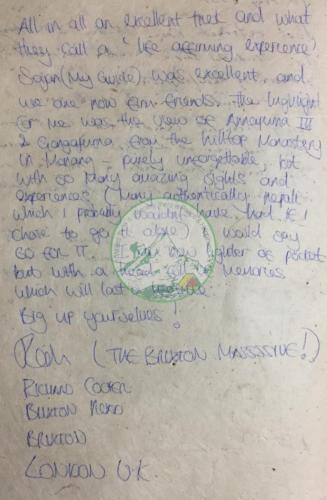 All in all an excellent trek and what
they call a 'life affirming experience'
(my guide), was excellent, and
we are now firm friends. The highlight
for me was the view of Annapurna III
& Gangapurna from the hilltop Monastery
in Manang - purely unforgettable, but
with so many amazing sights and
experiences (many authentically nepali
which I probably wouldn't have had if I
chose to go it alone) I would say
go for it. I am now lighter of pocket
but with a head full of memories
which will last a life time
Big up yourselves!
(THE BRIXTON MASSSSIVE!)
RICHARD
BRIXTON ROAD
BRIXTON
LONDON U.K.